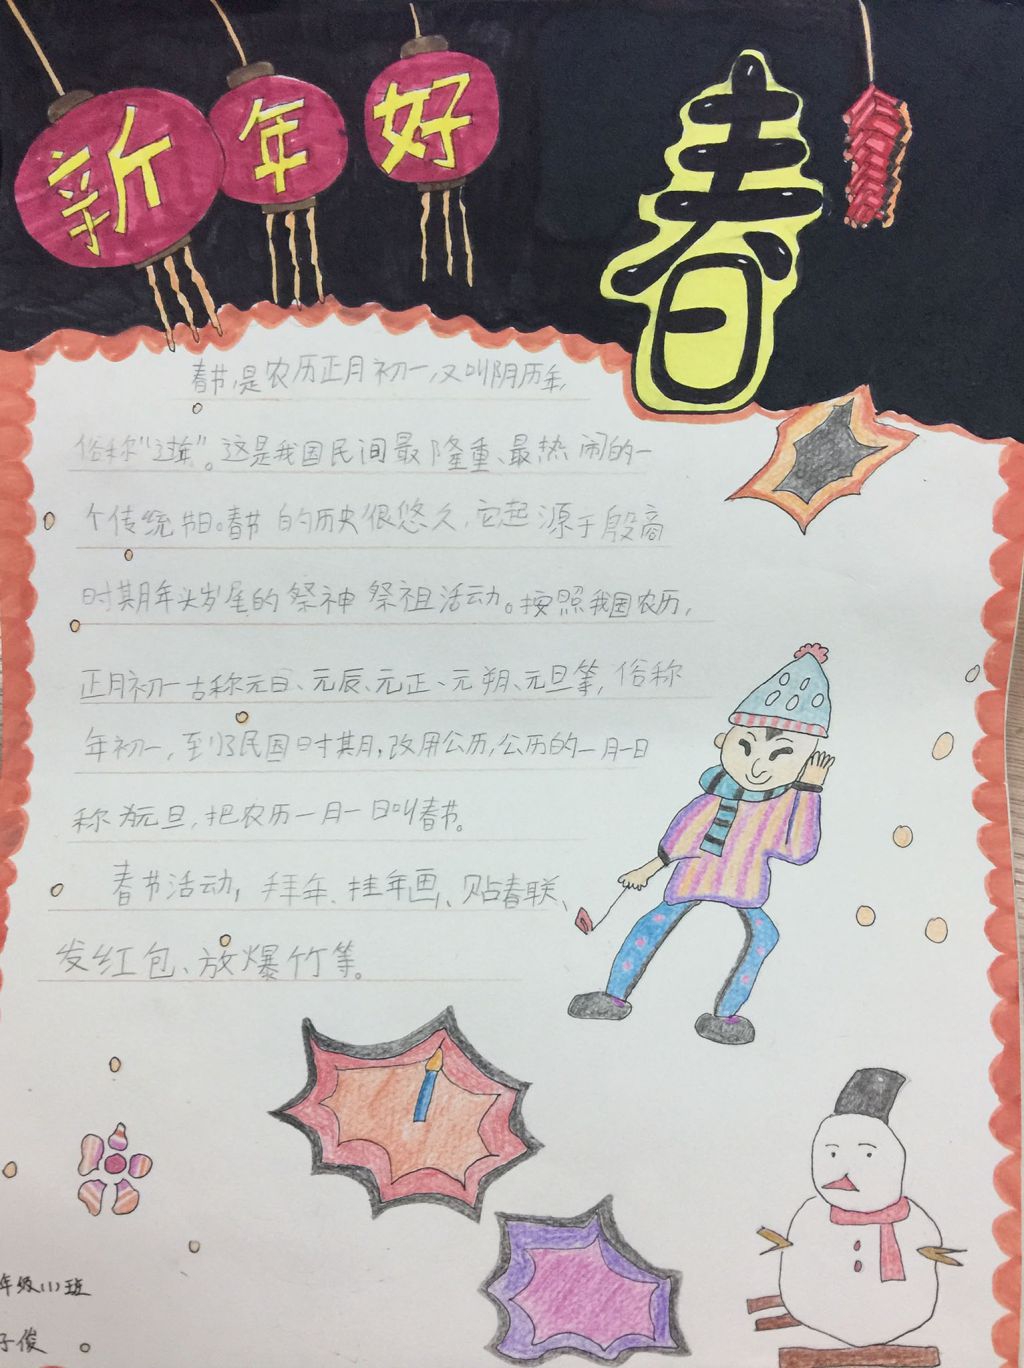 新年好
春
春节,是农历正月初一,又叫阴历年,
俗称“过年”。这是我国民间最隆重、最热闹的一
个传统节日。春节的历史很悠久,它起源于殷商
时期年头岁尾的祭神祭祖活动。按照我国农历,
正月初一古称元日、元辰、元正、元朔、元旦等,俗称
年初一,到了民国时期,改用公历,公历的一月一日
称为元旦,把农历一月一日叫春节。
春节活动,拜年、挂年画、贴春联、
发红包、放爆竹等。
年级(1)班
子俊